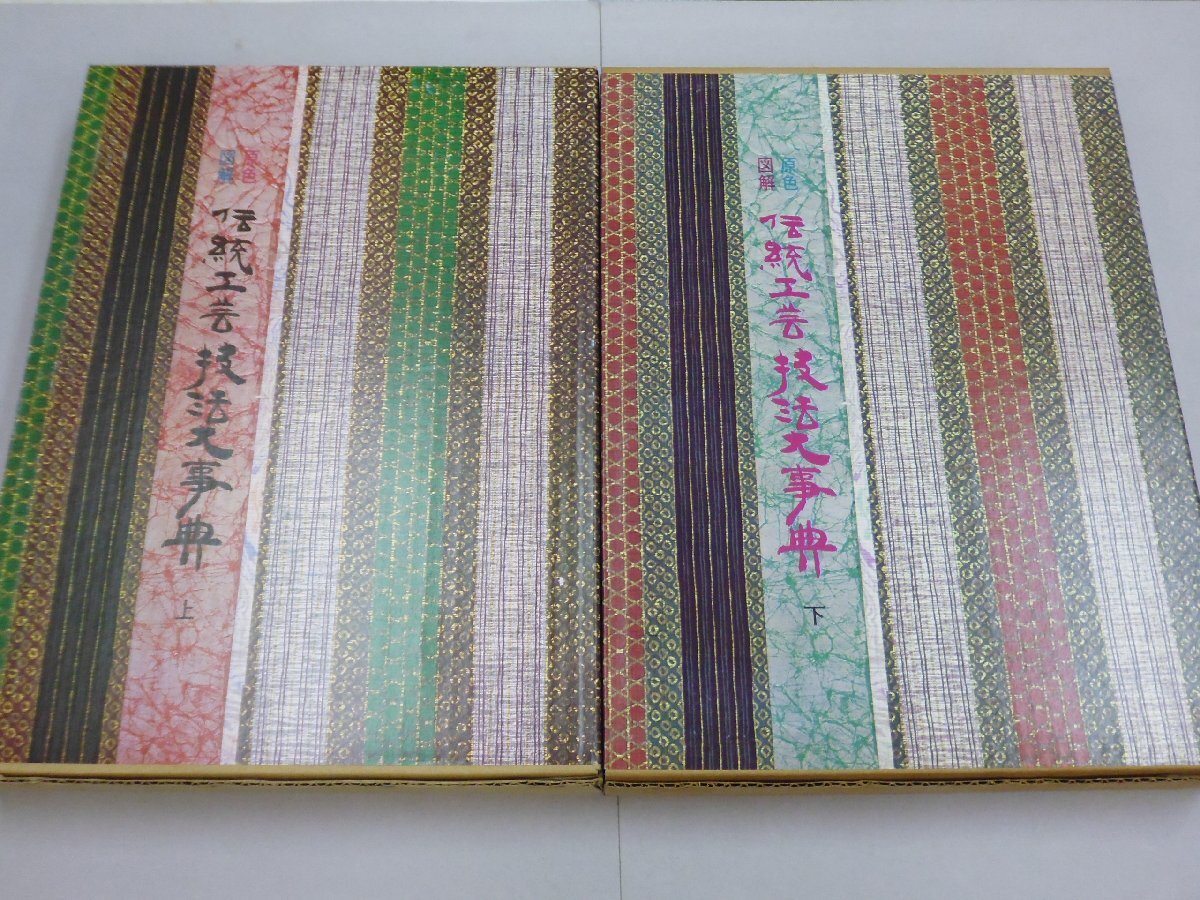 原色
図解
伝統工芸技法大事典
上
原色
図解
伝統工芸技法大事典
下